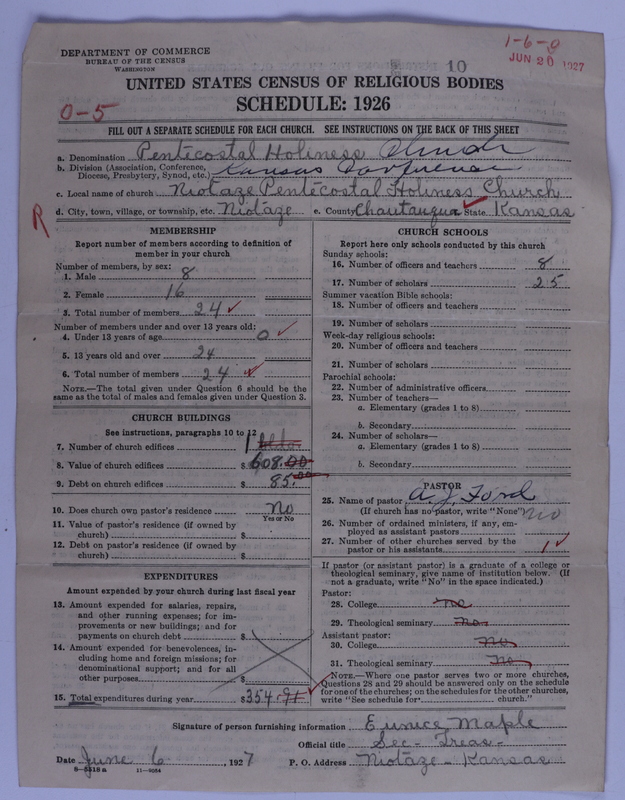 1-6-0
JUN 20 1927
10
DEPARTMENT OF COMMERCE
BUREAU OF THE CENSUS
WASHINGTON
UNITED STATES CENSUS OF RELIGIOUS BODIES
SCHEDULE: 1926
0-5
FILL OUT A SEPARATE SCHEDULE FOR EACH CHURCH. SEE INSTRUCTIONS ON THE BACK OF THIS SHEET
a. Denomination Pentecostal Holiness Church
b. Division (Association, Conference, Diocese, Presbytery, Synod, etc.) Kansas Conference
c. Local name of church Niotaze Pentecostal Holiness Church
R
d. City, town, village, or township, etc. Niotaze e. County Chautauqua State Kansas
MEMBERSHIP
Report number of members according to definition of
member in your church
Number of members, by sex:
1. Male 8
2. Female 16
3. Total number of members 24
Number of members under and over 13 years old:
4. Under 13 years of age 0
5. 13 years old and over 24
6. Total number of members 24
NOTE.—The total given under Question 6 should be the
same as the total of males and females given under Question 3.
CHURCH BUILDINGS
See instructions, paragraphs 10 to 12
7. Number of church edifices 1 bldg.
8. Value of church edifices $608.00
9. Debt on church edifices $85.00
10. Does church own pastor's residence No
Yes or No
11. Value of pastor's residence (if owned by
church) $
12. Debt on pastor's residence (if owned by
church) $
EXPENDITURES
Amount expended by your church during last fiscal year
13. Amount expended for salaries, repairs,
and other running expenses; for im-
provements or new buildings; and for
payments on church debt $
14. Amount expended for benevolences, in-
cluding home and foreign missions; for
denominational support; and for all
other purposes $
15. Total expenditures during year $354.91
CHURCH SCHOOLS
Report here only schools conducted by this church
Sunday schools:
16. Number of officers and teachers 8
17. Number of scholars 25
Summer vacation Bible schools:
18. Number of officers and teachers
19. Number of scholars
Week-day religious schools:
20. Number of officers and teachers
21. Number of scholars
Parochial schools:
22. Number of administrative officers
23. Number of teachers—
a. Elementary (grades 1 to 8)
b. Secondary
24. Number of scholars—
a. Elementary (grades 1 to 8)
b. Secondary
PASTOR
25. Name of pastor A. J. Ford
(If church has no pastor, write "None") no
26. Number of ordained ministers, if any, em-
ployed as assistant pastors
27. Number of other churches served by the
pastor or his assistants 1
If pastor (or assistant pastor) is a graduate of a college or
theological seminary, give name of institution below. (If
not a graduate, write "No" in the space indicated.)
Pastor:
28. College no
29. Theological seminary no
Assistant pastor:
30. College no
31. Theological seminary no
NOTE.—Where one pastor serves two or more churches,
Questions 28 and 29 should be answered only on the schedule
for one of the churches; on the schedules for the other churches,
write "See schedule for church."
Signature of person furnishing information Eunice Maple
Official title Sec-Treas-
Date June 6, 1927 P. O. Address Niotaze-Kansas
8-5518a 11-9084